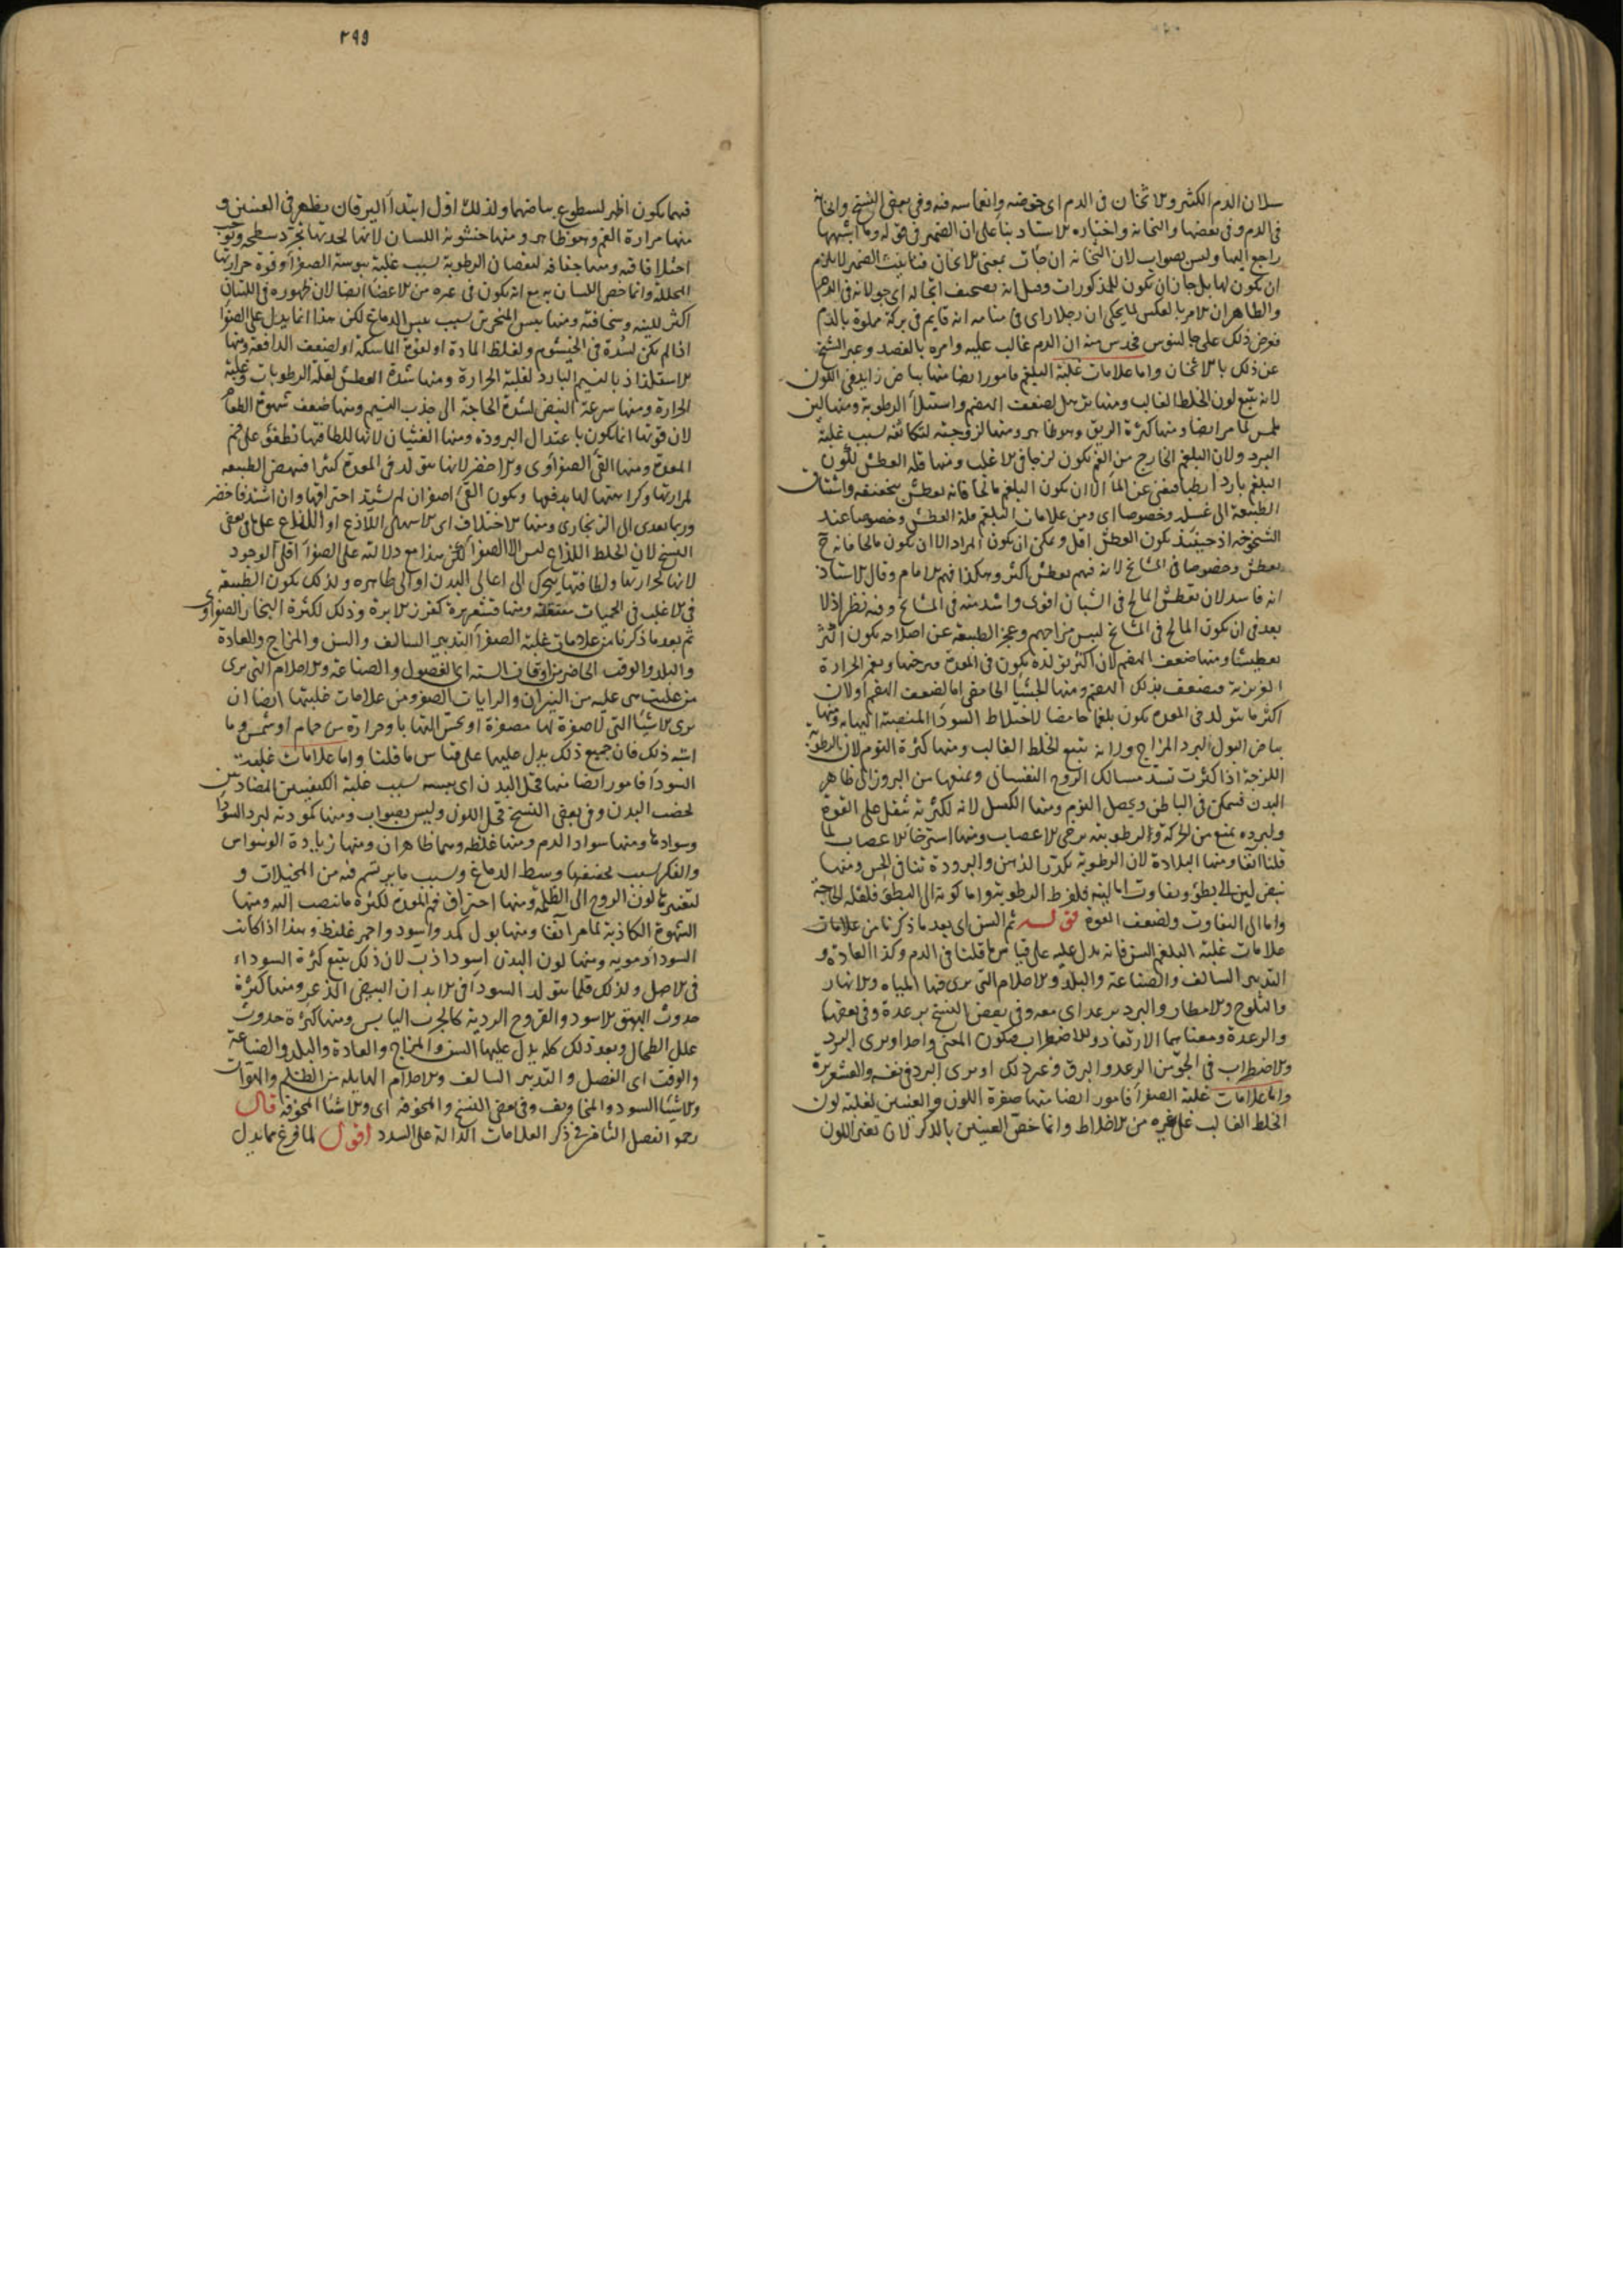 سيلان الدم الكثير والانخان في الدم اى خوضه وانغماسه فيه وفي بعض النسخ والخانه
في الدم وفي بعضها والنخانه واختياره الاستاد بناء على ان الضمير في قوله وما اشبهها
راجع اليها وليس بصواب لان النخانه ان جات بمعنى الانخان فتانيث الضمير لا يلزم
ان يكون لها بل جاز ان يكون للمذكورات وقيل انه تصحيف اى جولانه في الدم
والظاهر ان الامر بالعكس لما يحكى ان رجلا راى في منامه انه قايم في بركة مملوة بالدم
فعرض ذلك على جالينوس فحدس منه ان الدم غالب عليه وامره بالفصد وعبر الشيخ
عن ذلك بالانخان واما علامات غلبة البلغم فامور ايضا منها بياض زايد في اللون
لانه يتبع لون الخلط الغالب ومنها ترهل لضعف الهضم واستيلاء الرطوبة ومنها لين
ملمس لما مر ايضا ومنها كثرة الريق وهو ظاهر ومنها لزوجته لتكاثفه بسبب غلبة
البرد ولان البلغم الخارج من الفم يكون لزجا في الاغلب ومنها قلة العطش لكون
البلغم باردا رطبا فيغنى عن الماء الا ان يكون البلغم مالحا فانه يعطش بتجفيفه واشتياق
الطبيعة الى غسله وخصوصا اى ومن علامات البلغم قلة العطش وخصوصا عند
الشيخوخة اذ حينئذ يكون العطش اقل ويمكن ان يكون المراد الا ان يكون مالحا فانه ح
يعطش وخصوصا في المشايخ لانه فيهم يعطش اكثر وهكذا فهم الامام وقال الاستاد
انه فاسد لان تعطش المالح في الشبان اقوى واشد منه في المشايخ وفيه نظر اذ لا
بعد في ان يكون المالح في المشايخ ليبس مزاجهم وعجز الطبيعة عن اصلاحه يكون اكثر
تعطيشا ومنها ضعف الهضم لان اكثر تولده يكون في المعدة فيرخيها ويغمر الحرارة
الغريزية فيضعف بذلك الهضم ومنها الجشاء الحامض اما لضعف الهضم او لان
اكثر ما يتولد في المعدة يكون بلغما حامضا لاختلاط السوداء المنصبة اليها به ومنها
بياض البول لبرد المزاج ولانه يتبع الخلط الغالب ومنها كثرة النوم لان الرطوبة
اللزجة اذا كثرت تسد مسالك الروح النفسانى وتمنعها من البروز الى ظاهر
البدن فيسكن في الباطن ويحصل النوم ومنها الكسل لانه لكثرته يثقل على القوة
ولبرده يمنع من الحركة والرطوبته يرخى الاعصاب ومنها استرخاء الاعصاب لما
قلنا انفا ومنها البلادة لان الرطوبة تكدر الذهن والبرودة تنافى الحس ومنها
نبض لين الى بطؤ وتفاوت اما لينه فلفرط الرطوبة واما كونه الى البطؤ فلقلة الحاجة
واما الى التفاوت ولضعف القوة قوله ثم السن اى بعد ما ذكرنا من علامات
علامات غلبة البلغم السن فانه يدل عليه على قياس ما قلنا في الدم وكذا العادة و
التدبير السالف والصناعة والبلد والاحلام التى يرى فيها المياه والانهار
والثلوج والامطار والبرد برعد اى معه وفي بعض النسخ برعدة وفي بعضها
والرعدة ومعناهما الارتعاد والاضطراب فيكون المعنى واحدا ويرى البرد
والاضطراب في الجو من الرعد والبرق وغير ذلك او يرى البرد في نفسه والقشعريرة
واما علامات غلبة الصفراء فامور ايضا منها صفرة اللون والعينين لغلبة لون
الخلط الغالب على غيره من الاخلاط وانما خص العينين بالذكر لان تغير اللون
٢٩٩
فيهما يكون اظهر لسطوع بياضهما ولذلك اول ابتداء اليرقان يظهر في العينين و
منها مرارة الفم وهو ظاهر ومنها خشونة اللسان لانها لحدتها تجرد سطحه وتوجب
اختلافا فيه ومنها جفافه لنقصان الرطوبة بسبب غلبة يبوسة الصفراء وقوة حرارتها
المحللة وانما خص اللسان به مع انه يكون في غيره من الاعضاء ايضا لان ظهوره في اللسان
اكثر للينه وسخافته ومنها يبس المنخرين بسبب يبس الدماغ لكن هذا انما يدل على الصفراء
اذا لم يكن لسدة في الخيشوم ولغلظ المادة او لقوة الماسكة او لضعف الدافعة ومنها
الاستلذاذ بالنسيم البارد لغلبة الحرارة ومنها شدة العطش لقلة الرطوبات وغلبة
الحرارة ومنها سرعة النبض لشدة الحاجة الى جذب النسيم ومنها ضعف شهوة الطعام
لان قوتها انما يكون باعتدال البرودة ومنها الغثيان لانها للطافتها تطفو على فم
المعدة ومنها القئ الصفراوى والاخضر لانها يتولد في المعدة كثيرا فينهض الطبيعة
لمرارتها وكراهتها لها بدفعها ويكون القئ اصفر ان لم يشتد احتراقها وان اشتد فاخضر
وربما تعدى الى الزنجارى ومنها الاختلاف اى الاسهال اللاذع او اللذاع على ما في بعض
النسخ لان الخلط اللذاع ليس الا الصفراء لكن هذا مع دلالته على الصفراء اقلى الوجود
لانها لحرارتها ولطافتها يتحرك الى اعالى البدن او الى ظاهره ولذلك يكون الطبيعة
في الاغلب في الحميات معتقلة ومنها قشعريرة كغرز الابرة وذلك لكثرة البخار الصفراوى
ثم بعد ما ذكرنا من علامات غلبة الصفراء التدبير السالف والسن والمزاج والعادة
والبلد والوقت الحاضر من اوقات السنة اى الفصول والصناعة والاحلام التى يرى
من غلبت هى عليه من النيران والرايات الصفر ومن علامات غلبتها ايضا ان
يرى الاشياء التى لا صفرة لها مصفرة او يحس التهابا وحرارة من حمام او شمس وما
اشبه ذلك فان جميع ذلك يدل عليها على قياس ما قلنا واما علامات غلبة
السوداء فامور ايضا منها قحل البدن اى يبسه بسبب غلبة الكيفيتين المضادتين
لخصب البدن وفي بعض النسخ قحل اللون وليس بصواب ومنها كمودته لبرد السوداء
وسوادها ومنها سواد الدم ومنها غلظه وهما ظاهران ومنها زيادة الوسواس
والفكر بسبب تجفيفها وسط الدماغ وبسبب ما يرتسم فيه من المخيلات و
لتغييرها لون الروح الى الظلمة ومنها احتراق فم المعدة لكثرة ما ينصب اليه ومنها
الشهوة الكاذبة لما مر آنفا ومنها بول كمد واسود واحمر غليظ وهذا اذا كانت
السوداء دموية ومنها لون البدن اسود ازب لان ذلك يتبع كثرة السوداء
في الاصل ولذلك قلما يتولد السوداء في الابدان البيض الذعر ومنها كثرة
حدوث البهق الاسود والقروح الردية كالجرب اليابس ومنها كثرة حدوث
علل الطحال وبعد ذلك كله يدل عليها السن والمزاج والعادة والبلد والصناعة
والوقت اى الفصل والتدبير السالف والاحلام الهايلة من الظلم والهوات
والاشياء السود والمخاويف وفي بعض النسخ والمخوفة اى والاشياء المخوفة قال
رحمه الفصل الثامن في ذكر العلامات الدالة على السدد اقول لما فرغ مما يدل